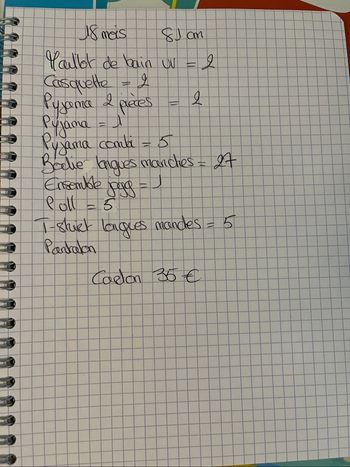 18 mois 81 cm
Maillot de bain uv = 2
Casquette = 2
Pyjama 2 pièces = 2
Pyjama = 1
Pyjama combi = 5
Bodie longues manches = 27
Ensemble jogg = 1
Poll = 5
T-shirt longues manches = 5
Pantalon
35 €